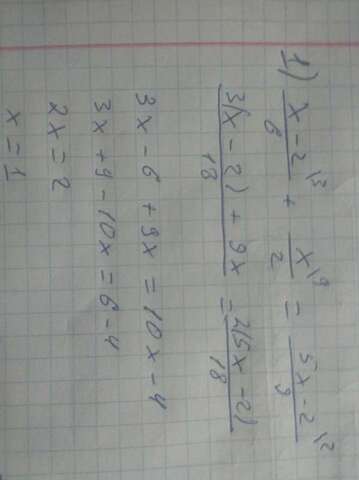 1) (x-2)/6 \3 + x/2 \9 = (5x-2)/9 \2
(3(x-2)+9x)/18 = 2(5x-2)/18
3x-6+9x=10x-4
3x+9-10x=6-4
2x=2
x=1